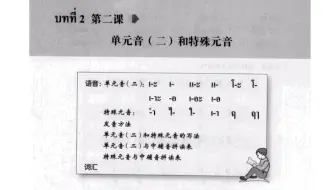 บทที่ 2 第二课
单元音（二）和特殊元音
语音：单元音（二）：เ-ะ เ- แ-ะ แ- โ-ะ โ-
เ-าะ -อ เ-อะ เ-อ
特殊元音： -ำ ใ- ไ- เ-า ฤ ฤๅ
发音方法
单元音（二）和特殊元音的写法
单元音（二）与中辅音拼读表
特殊元音与中辅音拼读表
词汇